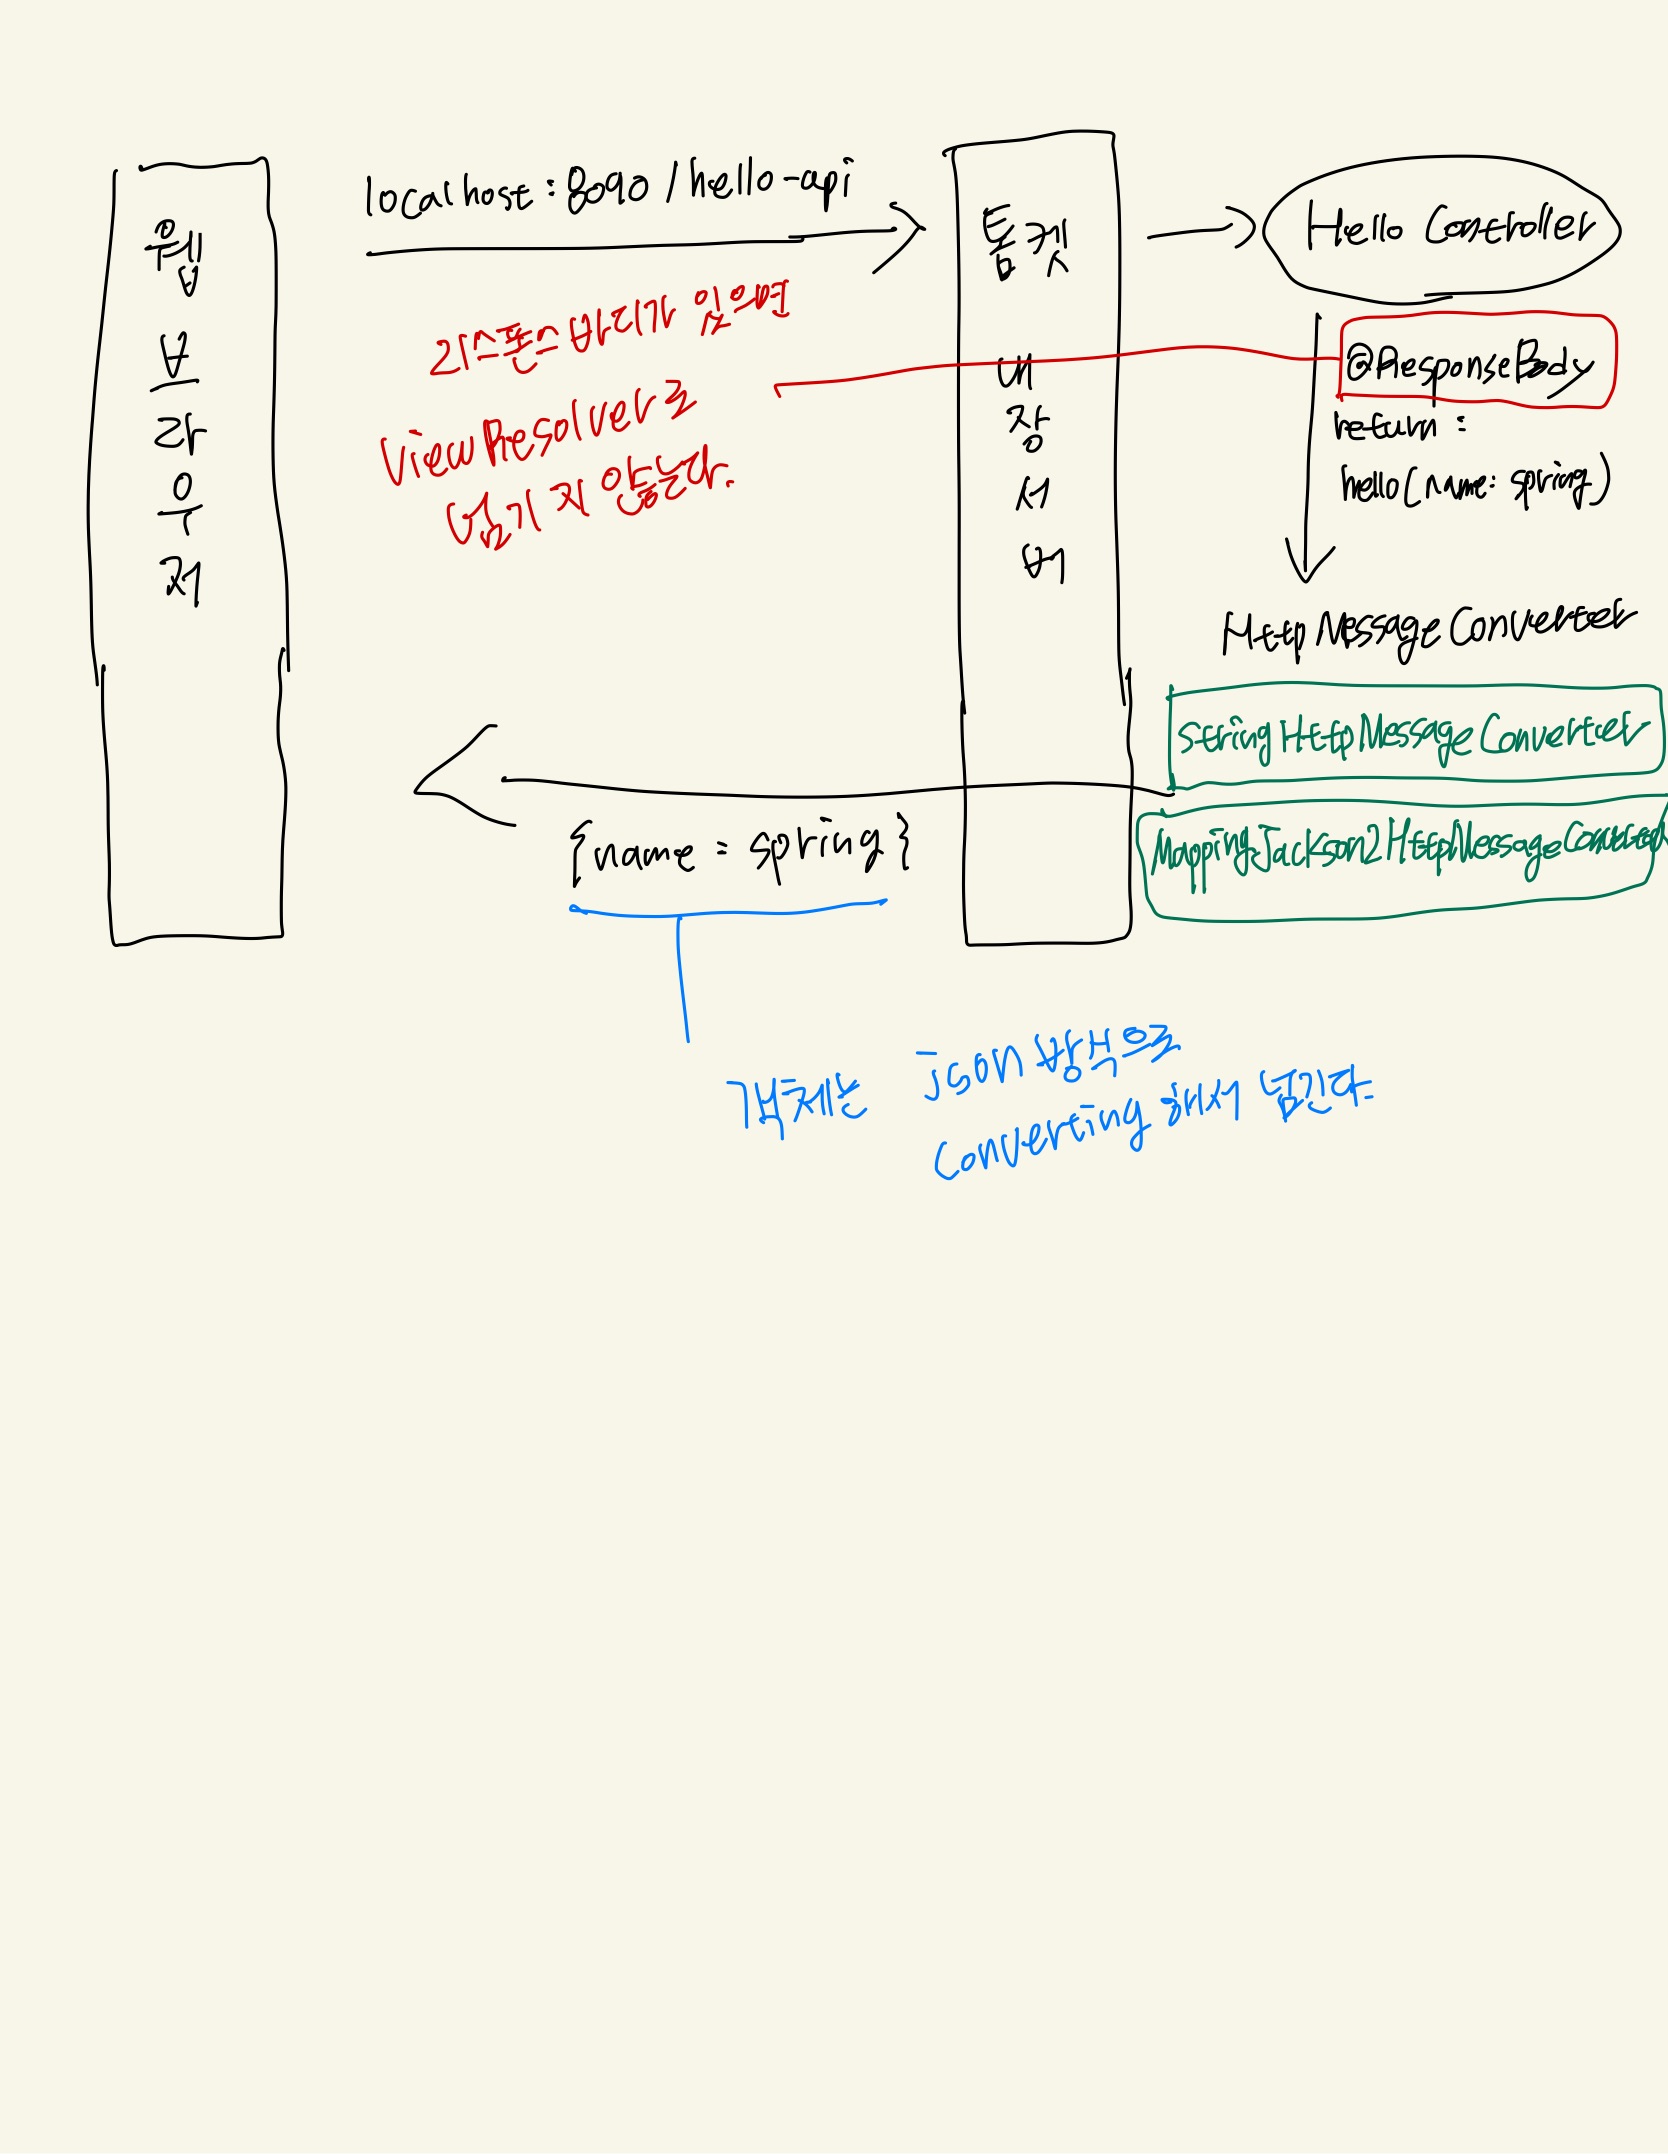 웹
브
라
우
저
localhost:8090/hello-api
리스폰스바디가 있으면
ViewResolver로
넘기지 않는다.
톰캣
내
장
서
버
Hello Controller
@ResponseBody
return :
hello(name: spring)
HttpMessageConverter
StringHttpMessageConverter
MappingJackson2HttpMessageConverter
{name : spring}
객체는 json 방식으로
Converting 해서 넘긴다.